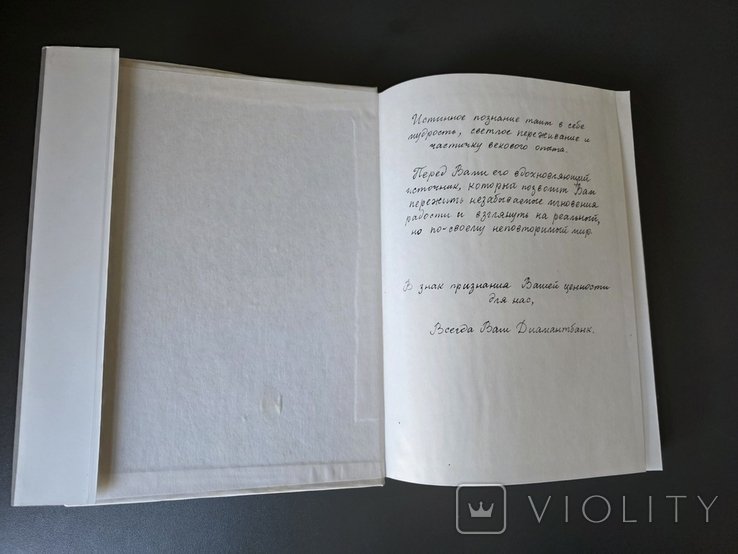 Истинное познание таит в себе
мудрость, светлое переживание и
частичку векового опыта.
Перед Вами его вдохновляющий
источник, которых позволит Вам
пережить незабываемые мгновения
радости и взглянуть на реальный,
но по-своему неповторимый мир.
В знак признания Вашей ценности
для нас,
Всегда Ваш Диамантбанк.
VIOLITY